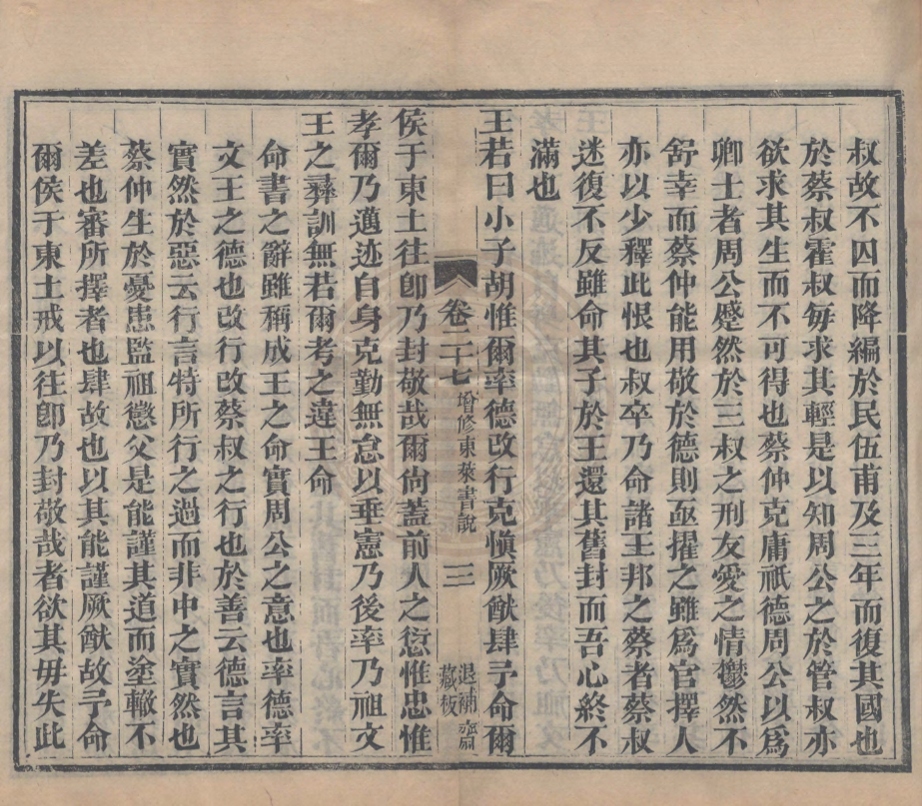 叔故不囚而降編於民伍甫及三年而復其國也
於蔡叔霍叔每求其輕是以知周公之於管叔亦
欲求其生而不可得也蔡仲克庸祗德周公以爲
卿士者周公蹙然於三叔之刑友愛之情鬱然不
舒幸而蔡仲能用敬於德則亟擢之雖爲官擇人
亦以少釋此恨也叔卒乃命諸王邦之蔡者蔡叔
迷復不反雖命其子於王還其舊封而吾心終不
滿也
王若曰小子胡惟爾率德改行克愼厥猷肆予命爾
卷二十七 增修東萊書說 三 退補齋藏板
侯于東土往卽乃封敬哉爾尙蓋前人之愆惟忠惟
孝爾乃邁迹自身克勤無怠以垂憲乃後率乃祖文
王之彞訓無若爾考之違王命
命書之辭雖稱成王之命實周公之意也率德率
文王之德也改行改蔡叔之行也於善云德言其
實然於惡云行言特所行之過而非中之實然也
蔡仲生於憂患監祖懲父是能謹其道而塗轍不
差也審所擇者也肆故也以其能謹厥猷故予命
爾侯于東土戒以往卽乃封敬哉者欲其毋失此